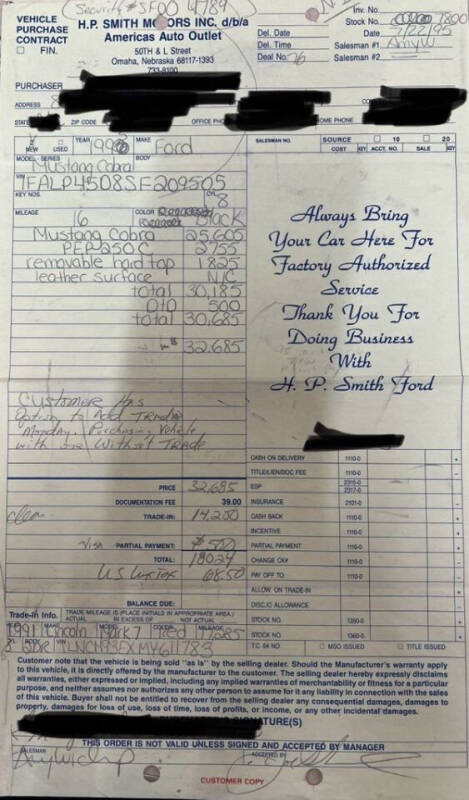 Security #SF00 4789
VEHICLE PURCHASE CONTRACT
FIN.
H.P. SMITH MOTORS INC. d/b/a
Americas Auto Outlet
50TH & L Street
Omaha, Nebraska 68117-1393
733-8100
Inv. No.
Stock No. 7800
Del. Date 7/22/95
Del. Time Salesman #1 AmyW
Deal No. 76 Salesman #2
PURCHASER
ADDRESS
STATE ZIP CODE OFFICE PHONE HOME PHONE
NEW USED YEAR MAKE Ford
SALESMAN NO. SOURCE 10 20
COST KEY ACCT. NO. SALE KEY
MODEL - SERIES BODY
Mustang Cobra
VIN
1FALP45D8SF209505
KEY NOS. CYL 8
MILEAGE 16 COLOR Black
Mustang Cobra 25,605
PEP 250C 2755
removable hard top 1825
leather surface N/C
total 30,185
OTD 500
total 30,685
32,685
Always Bring
Your Car Here For
Factory Authorized
Service
Thank You For
Doing Business
With
H. P. Smith Ford
Customer Has
Option to Add Trade
Monday. Purchasing Vehicle
with or Without TRADE
CASH ON DELIVERY 1110-0
TITLE/LIEN/DOC FEE 1110-0
ESP 2316-0 2317-0
PRICE 32,685
DOCUMENTATION FEE 39.00
INSURANCE 2101-0
clean TRADE-IN: 14,200
CASH BACK 1110-0
INCENTIVE 1110-0
Visa PARTIAL PAYMENT: $500
PARTIAL PAYMENT 1110-0
TOTAL: 18024
CHANGE CK# 1110-0
US Lux Tax 68.50
PAY OFF TO: 1110-0
ALLOW. ON TRADE-IN
BALANCE DUE:
DISC./C ALLOWANCE
Trade-In Info. TRADE MILEAGE IS (PLACE INITIALS IN APPROPRIATE AREA) ACTUAL IN EXCESS OF NOT ACTUAL
STOCK NO. 1350-0
1991 Lincoln Mark 7 Red
STOCK NO. 1360-5
T.C. 84 NO MSO ISSUED TITLE ISSUED
Customer note that the vehicle is being sold "as is" by the selling dealer. Should the Manufacturer's warranty apply
to this vehicle, it is directly offered by the manufacturer to the customer. The selling dealer hereby expressly disclaims
all warranties, either expressed or implied, including any implied warranties of merchantability or fitness for a particular
purpose, and neither assumes nor authorizes any other person to assume for it any liability in connection with the sales
of this vehicle. Buyer shall not be entitled to recover from the selling dealer any consequential damages, damages to
property, damages for loss of use, loss of time, loss of profits, or income, or any other incidental damages.
SIGNATURE(S)
THIS ORDER IS NOT VALID UNLESS SIGNED AND ACCEPTED BY MANAGER
SALESMAN ACCEPTED BY
CUSTOMER COPY